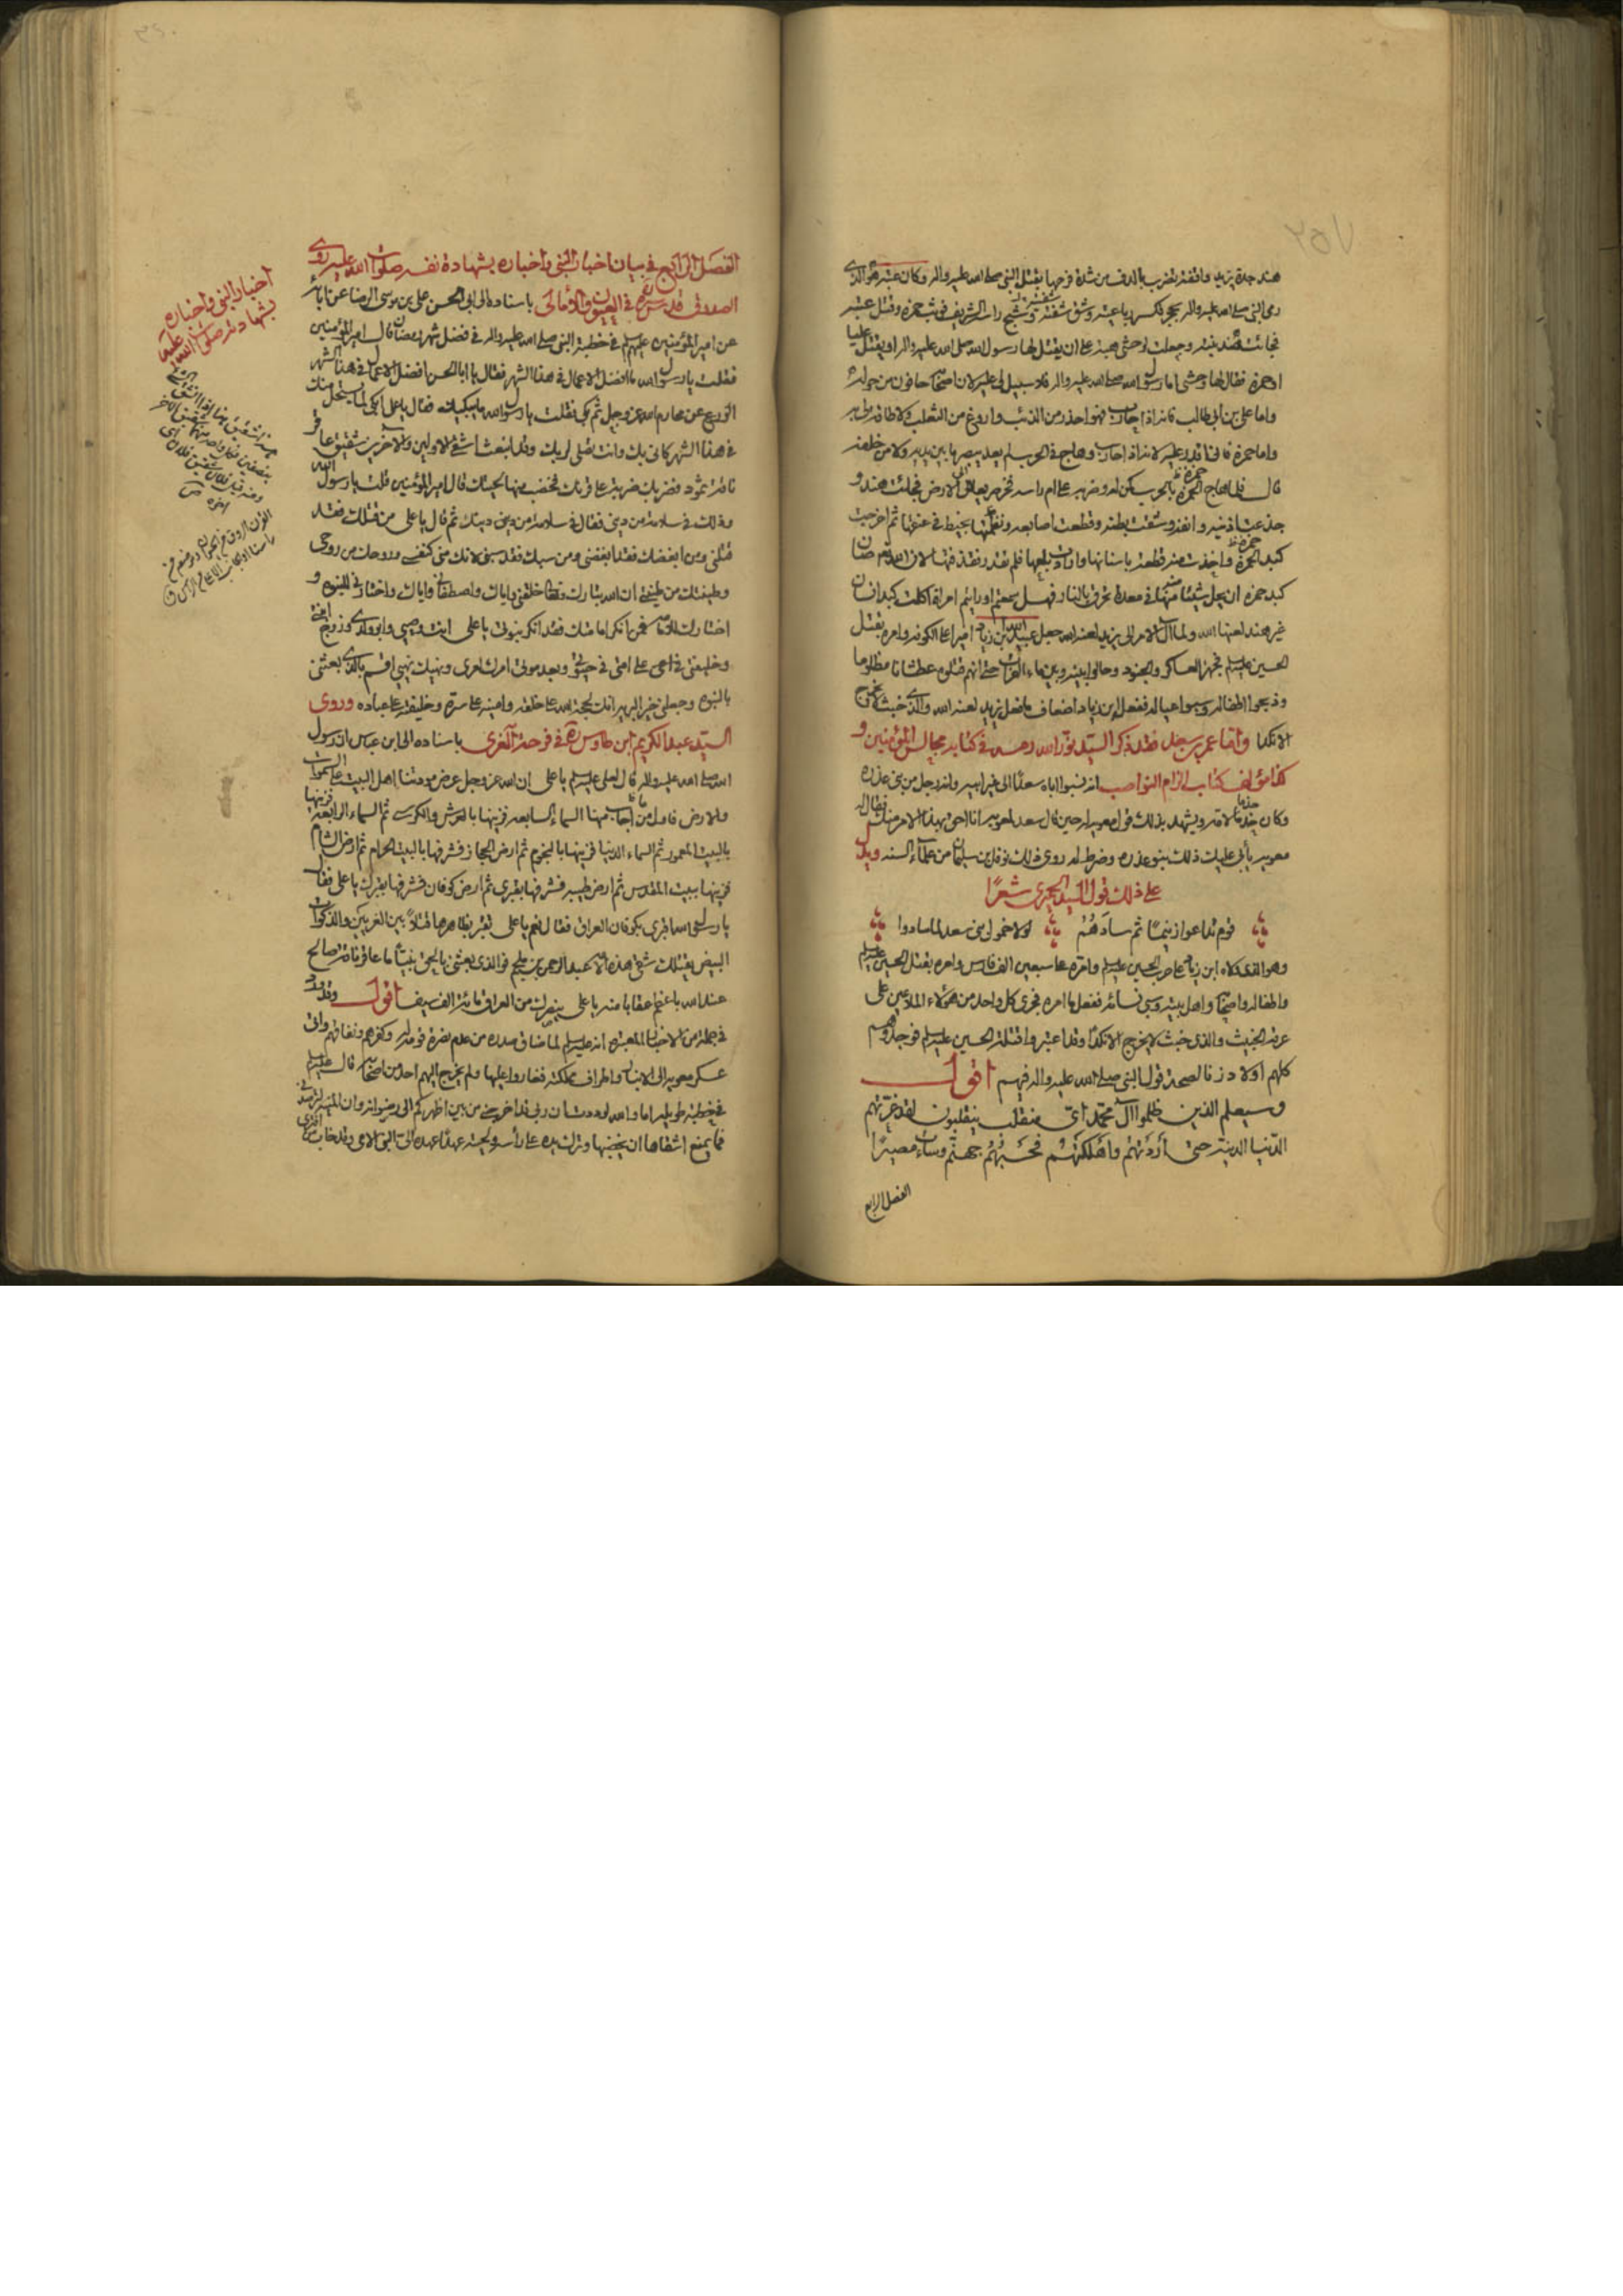 هند جدة يزيد واقفة تضرب بالدف من شدة فرحها بقتل النبي صلى الله عليه واله وكان عتبة هو الذي
رمى النبي صلى الله عليه واله بحجر فكسر رباعيته وشق شفته وشج راسه الشريف فوثب حمزة وقتل عتبة
فجائت هند بنته وجعلت لوحشي هبة على ان يقتل لها رسول الله صلى الله عليه واله او يقتل عليا
او حمزة فقال لها وحشي اما رسول الله صلى الله عليه واله فلا سبيل لي عليه لان اصحابه حافون من حوله
واما علي بن ابي طالب فانه اذا حارب فهو احذر من الذئب واروغ من الثعلب ولا طاقة لي به
واما حمزة فاني اقدر عليه لانه اذا حارب وهاج في الحرب لم يعد يبصر ما بين يديه ولا من خلفه
قال فلما هاج الحمزة بالحرب كمن له وضربه على ام راسه فخر صريعا الى الارض فجائت هند و
جدعت اذنيه وانفه وشقت بطنه وقطعت اصابعه ونظمتها بخيط في عنقها ثم اخرجت
كبد الحمزة واخذت منه قطعة باسنانها وارادت بلعها فلم تقدر فقذفتها لان الله تعالى صان
كبد حمزة ان يحل شيئا منها في معدة تحرق بالنار فهل سمعتم او رايتم امراة اكلت كبد انسان
غير هند لعنها الله ولما آل الامر الى يزيد لعنه الله جعل عبيد الله ابن زياد اميرا على الكوفة وامره بقتل
الحسين عليه السلم فجهز العساكر والجنود وحالوا بينه وبين ماء الفرات حتى انهم قتلوه عطشانا مظلوما
وذبحوا اطفاله وسبوا عياله ففعل ابن زياد اضعاف ما فعل يزيد لعنه الله والذي خبث لا يخرج
الا نكدا واما عمر بن سعد فقد ذكر السيد نور الله رحمه الله في كتابه مجالس المؤمنين و
كذا مؤلف كتاب الزام النواصب انه نسبوا اباه سعدا الى غير ابيه وانه رجل من بني عذرة
وكان خدنا لامه ويشهد بذلك قول معوية له حين قال سعد لمعوية انا احق بهذا الامر منك فقال له
معوية يأبى عليك ذلك بنو عذرة وضرط له روى ذلك نوفل بن سليمان من علماء السنة ويدل
على ذلك قول السيد الحميري شعرا
قوم تداعوا زنيما ثم سادهم لولا خمول بني سعد لما سادوا
وهو الذي ولاه ابن زياد على حرب الحسين عليه السلم وامره على سبعين الف فارس وامره بقتل الحسين عليه السلم
واطفاله واصحابه واهل بيته وسبي نسائه ففعل ما امره فجرى كل واحد من هؤلاء الملاعين على
عرقه الخبيث والذي خبث لا يخرج الا نكدا وقد اعتبروا قتلة الحسين عليه السلم فوجدوهم
كلهم اولاد زنا لصحة قول النبي صلى الله عليه واله فيهم اقول
وسيعلم الذين ظلموا آل محمد اي منقلب ينقلبون لقد غرتهم
الدنيا الدنية حتى اردتهم واهلكتهم فحسبهم جهنم وساءت مصيرا
الفصل الرابع
الفصل الرابع في بيان اخبار النبي واخباره بشهادة نفسه صلوات الله عليه روى
الصدوق قدس سره في العيون والامالي باسناده الى ابي الحسن علي بن موسى الرضا عن ابائه
عن امير المؤمنين عليهم السلم في خطبة النبي صلى الله عليه واله في فضل شهر رمضان قال امير المؤمنين
فقلت يا رسول الله ما افضل الاعمال في هذا الشهر فقال يا ابا الحسن افضل الاعمال في هذا الشهر
الورع عن محارم الله عز وجل ثم بكى فقلت يا رسول الله ما يبكيك فقال يا علي ابكي لما يستحل منك
في هذا الشهر كاني بك وانت تصلي لربك وقد انبعث اشقى الاولين والآخرين شقيق عاقر
ناقة ثمود فضربك ضربة على قرنك فخضب منها لحيتك قال امير المؤمنين قلت يا رسول الله
وذلك في سلامة من ديني فقال في سلامة من دينك ثم قال يا علي من قتلك فقد
قتلني ومن ابغضك فقد ابغضني ومن سبك فقد سبني لانك مني كنفسي وروحك من روحي
وطينتك من طينتي ان الله تبارك وتعالى خلقني واياك واصطفاني واياك واختارني للنبوة و
اختارك للامامة فمن انكر امامتك فقد انكر نبوتي يا علي انت وصيي وابو ولدي وزوج ابنتي
وخليفتي في امتي على امتي في حيوتي وبعد موتي امرك امري ونهيك نهيي اقسم بالذي بعثني
بالنبوة وجعلني خير البرية انك لحجة الله على خلقه وامينه على سره وخليفته على عباده وروى
السيد عبد الكريم ابن طاوس ره في فرحة الغري باسناده الى ابن عباس ان رسول
الله صلى الله عليه واله قال لعلي عليه السلم يا علي ان الله عز وجل عرض مودتنا اهل البيت على السموات
والارض فاول من اجاب منها السماء السابعة فزينها بالعرش والكرسي ثم السماء الرابعة فزينها
بالبيت المعمور ثم السماء الدنيا فزينها بالنجوم ثم ارض الحجاز فشرفها بالبيت الحرام ثم ارض الشام
فزينها ببيت المقدس ثم ارض طيبة فشرفها بقبري ثم ارض كوفان فشرفها بقبرك يا علي فقال
يا رسول الله اقبر بكوفان العراق فقال نعم يا علي تقبر بظاهرها قتلا بين الغريين والذكوات
البيض يقتلك شقي هذه الامة عبد الرحمن بن ملجم فوالذي بعثني بالحق نبيا ما عاقر ناقة صالح
عند الله باعظم عقابا منه يا علي ينصرك من العراق مائة الف سيف اقول وقد ورد
في جملة من الاخبار المعتبرة انه عليه السلم لما ضاق صدره من عدم نصرة قومه له وكفرهم ونفاقهم واتى
عسكر معوية الى الانبار واطراف مملكته فغاروا عليها ولم يخرج اليهم احد من اصحابه قال عليه السلم
في خطبة طويلة اما والله لوددت ان ربي قد اخرجني من بين اظهركم الى رضوانه وان المنية لترصدني
فما يمنع اشقاها ان يخضبها وترك يده على رأسه ولحيته عهدا عهده الي النبي الامي وقد خاب من افترى
اخبار النبي واخباره
بشهادته صلوات الله عليهما